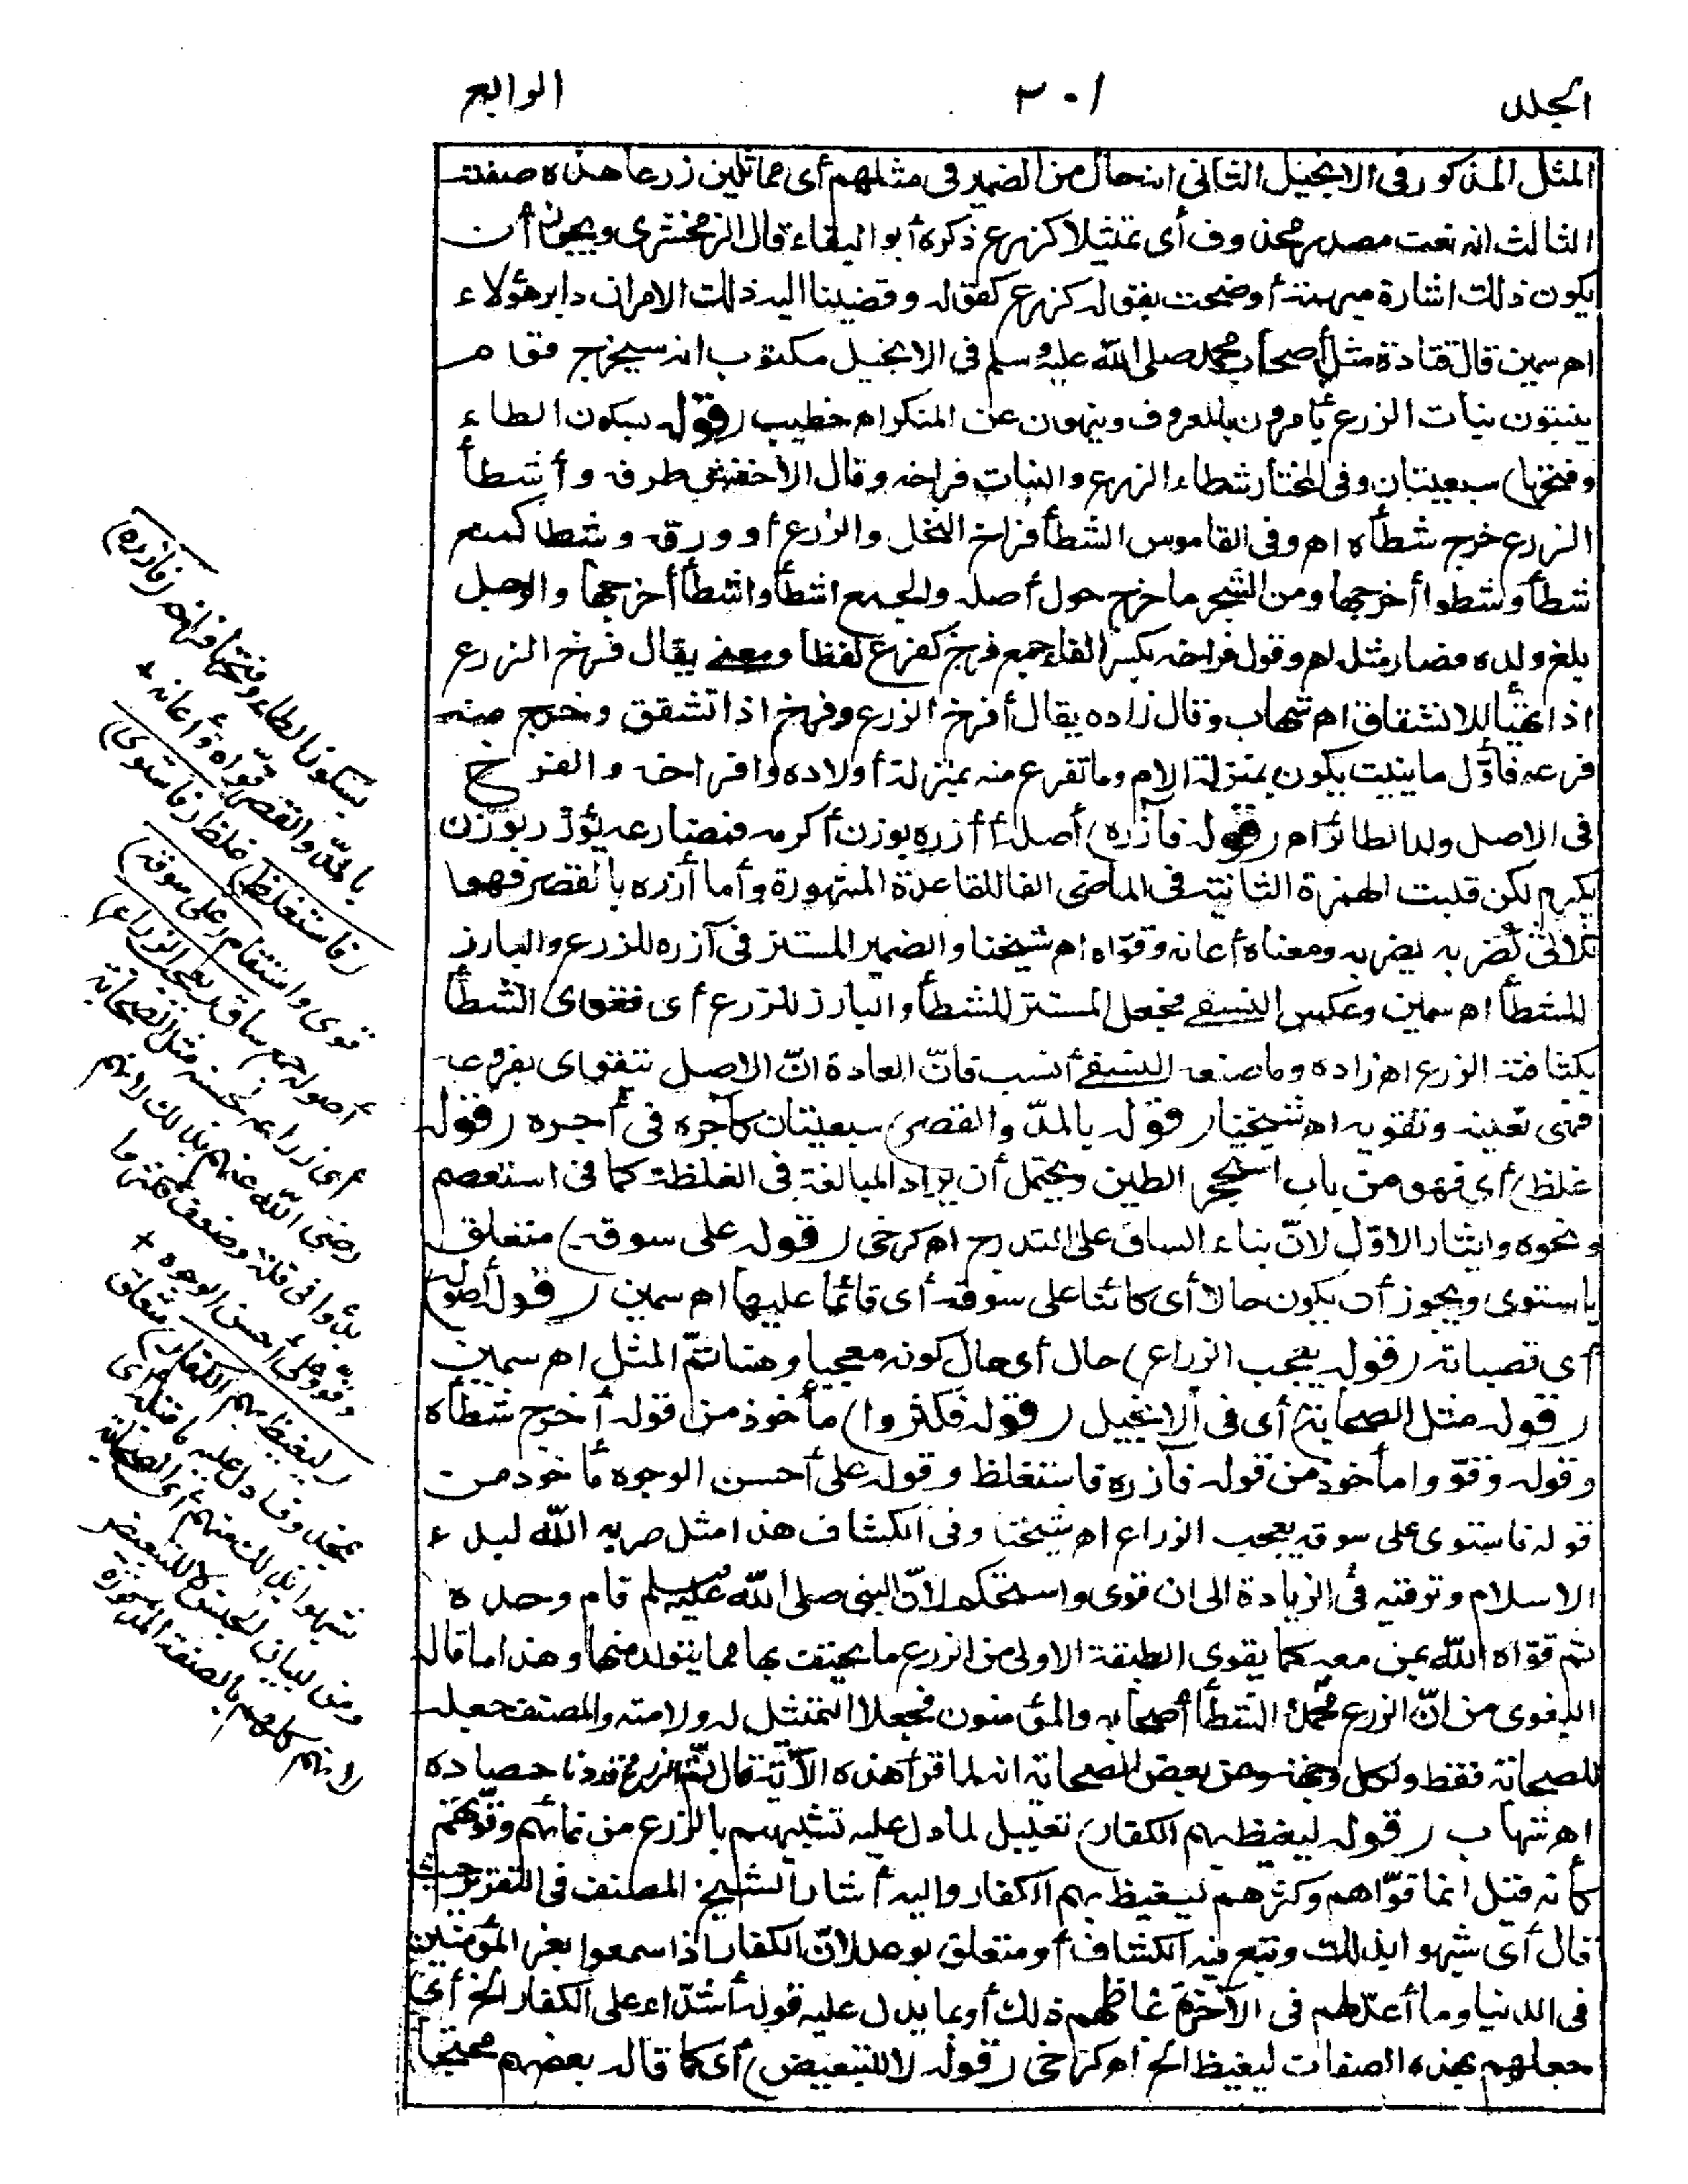 المجلد ٢٠١ الرابع
المثل المذكور في الانجيل الثاني انه حال من الضمير في مثلهم أى مماثلين زرعا هذه صفته
الثالث انه نعت مصدر محذوف أى تمثيلا كزرع ذكره أبو البقاء قال الزمخشرى ويجوز أن
يكون ذلك اشارة مبهمة أوضحت بقوله كزرع كقوله وقضينا اليه ذلك الامر ان دابر هؤلاء
اهـ سمين قال قتادة مثل أصحاب محمد صلى الله عليه وسلم في الانجيل مكتوب انه سيخرج قوم
ينبتون نبات الزرع يأمرون بالمعروف وينهون عن المنكر اهـ خطيب (قوله بسكون الطاء
وفتحها) سبعيتان وفى المختار شطاء الزرع والنبات فراخه وقال الأخفش طرفه وأشطأ
الزرع خرج شطأه اهـ وفى القاموس الشطأ فراخ النخل والزرع أو ورقه وشطأ كمنع
شطأ وشطوا أخرجها ومن الشجر ما خرج حول أصله والجمع اشطأ واشطأ أخرجها والرجل
بلغ ولده فصار مثله اهـ وقوله فراخه بكسر الفاء جمع فرخ كفرع لفظا ومعنى يقال فرخ الزرع
اذا تهيأ للانشقاق اهـ شهاب وقال زاده يقال أفرخ الزرع وفرخ اذا تشقق وخرج منه
فرعه فأوّل ما ينبت يكون بمنزلة الام وما تفرع منه بمنزلة أولاده وافراخه والفرخ
فى الاصل ولد الطائر اهـ (قوله فآزره) أصله أأزره بوزن أكرمه فمضارعه يؤزر بوزن
يكرم لكن قلبت الهمزة الثانية فى الماضى الفا للقاعدة المشهورة وأما أزره بالقصر فهو
ثلاثى كضربه يضربه ومعناه أعانه وقوّاه اهـ شيخنا والضمير المستتر فى آزره للزرع والبارز
للشطأ اهـ سمين وعكس النسفى فجعل المستتر للشطأ والبارز للزرع أى فقوى الشطأ
بكثافته الزرع اهـ زاده وما صنعه النسفى أنسب فانّ العادة انّ الاصل يتقوى بفروعه
فهى تعينه وتقويه اهـ شيخنا (قوله بالمدّ والقصر) سبعيتان كآجره فى أجره (قوله
غلظ) أى فهو من باب استحجر الطين ويحتمل أن يراد المبالغة فى الغلظة كما فى استعصم
ونحوه وايثار الاوّل لانّ بناء الساق على التدريج اهـ كرخى (قوله على سوقه) متعلق
باستوى ويجوز أن يكون حالا أى كائنا على سوقه أى قائما عليها اهـ سمين (قوله أصوله)
أى قصباته (قوله يعجب الزراع) حال أى حال كونه معجبا وهنا تمّ المثل اهـ سمين
(قوله مثل الصحابة) أى فى الانجيل (قوله فكثروا) مأخوذ من قوله أخرج شطأه
وقوله وقووا مأخوذ من قوله فآزره فاستغلظ وقوله على أحسن الوجوه مأخوذ من
قوله فاستوى على سوقه يعجب الزراع اهـ شيخنا وفى الكشاف هذا مثل ضربه الله لبدء
الاسلام وترقيه فى الزيادة الى ان قوى واستحكم لانّ النبى صلى الله عليه وسلم قام وحده
ثم قوّاه الله بمن معه كما يقوى الطبقة الاولى من الزرع ما يحتف بها مما يتولد منها وهذا ما قاله
البغوى من انّ الزرع محمد والشطأ أصحابه والمؤمنون فجعلا التمثيل له ولامته والمصنف جعله
للصحابة فقط ولكل وجهة وعن بعض الصحابة انه لما قرأ هذه الآية قال تمّ الزرع وقد دنا حصاده
اهـ شهاب (قوله ليغيظ بهم الكفار) تعليل لما دل عليه تشبيههم بالزرع من نمائهم وقوّتهم
كأنه قيل انما قوّاهم وكثرهم ليغيظ بهم الكفار واليه أشار الشيخ المصنف فى التقرير حيث
قال أى شبهوا بذلك وتبع فيه الكشاف أو متعلق بوعد لانّ الكفار اذا سمعوا بعز المؤمنين
فى الدنيا وما أعدّ لهم فى الآخرة غاظهم ذلك أو بما يدل عليه قوله أشدّاء على الكفار الخ أى
جعلهم بهذه الصفات ليغيظ الخ اهـ كرخى (قوله لا للتبعيض) أى كما قاله بعضهم محتجا
بسكون الطاء وفتحها فراخه (فآزره)
بالمدّ والقصر قوّاه وأعانه
(فاستغلظ) غلظ (فاستوى)
قوى واستقام (على سوقه)
أصوله جمع ساق (يعجب الزراع)
أى زراعه لحسنه مثل الصحابة
رضى الله عنهم بذلك لانهم
بدؤا فى قلة وضعف فكثروا
وقووا على أحسن الوجوه
(ليغيظ بهم الكفار) متعلق
بمحذوف دل عليه ما قبله أى
شبهوا بذلك منهم أى الصحابة
ومن لبيان الجنس لا للتبعيض
لانهم كلهم بالصفة المذكورة